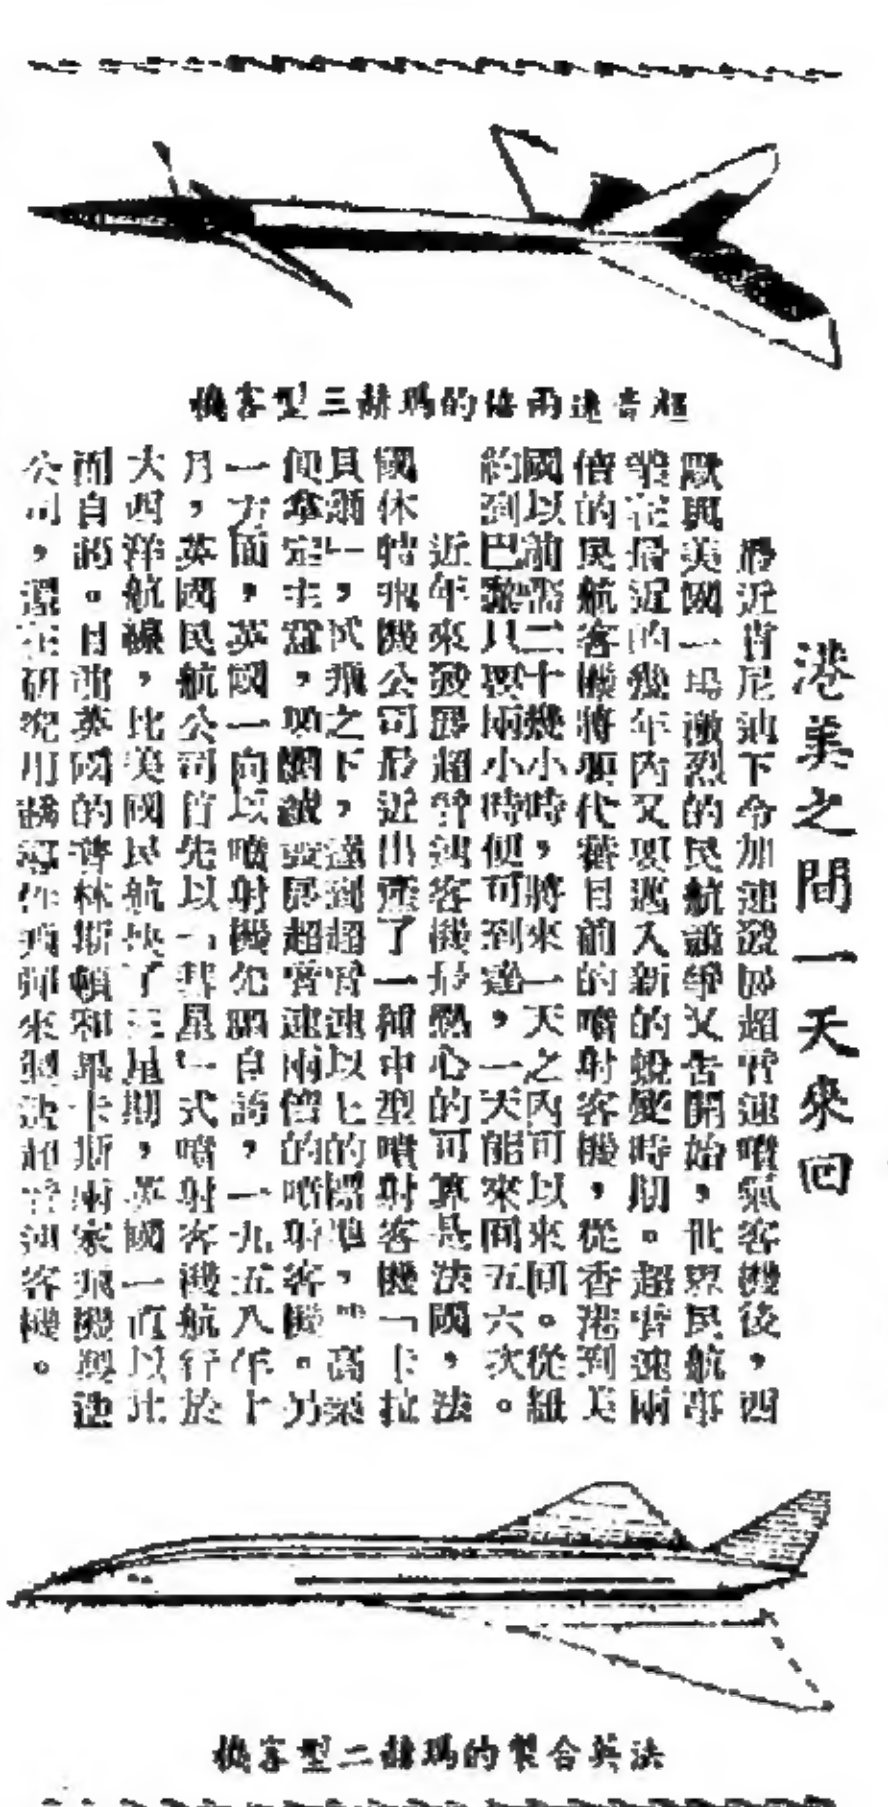 超音速兩倍的瑪赫三型客機
港美之間一天來回
最近肯尼迪下令加速發展超音速噴氣客機後，西
歐與美國一場激烈的民航競爭又告開始，世界民航事
業在最近的幾年內又要邁入新的蛻變時期。超音速兩
倍的民航客機將要代替目前的噴射客機，從香港到美
國以前需二十幾小時，將來一天之內可以來回。從紐
約到巴黎只要兩小時便可到達，一天能來回五六次。
近年來發展超音速客機最熱心的可算是法國，法
國休特飛機公司最近出產了一種中型噴射客機「卡拉
貝爾」，試飛之下，達到超音速以上的標準，高樂
便拿定主意，發展超音速兩倍的噴射客機。另
一方面，英國一向以噴射機先驅自誇，一九五八年十
月，英國民航公司首先以「彗星」式噴射客機航行於
大西洋航線，比美國民航快了三星期，英國一直以此
而自誇。目前英國的普林斯頓和卡斯兩家飛機製造
公司，還在研究用來製造超音速客機。
法英合製的瑪赫二型客機